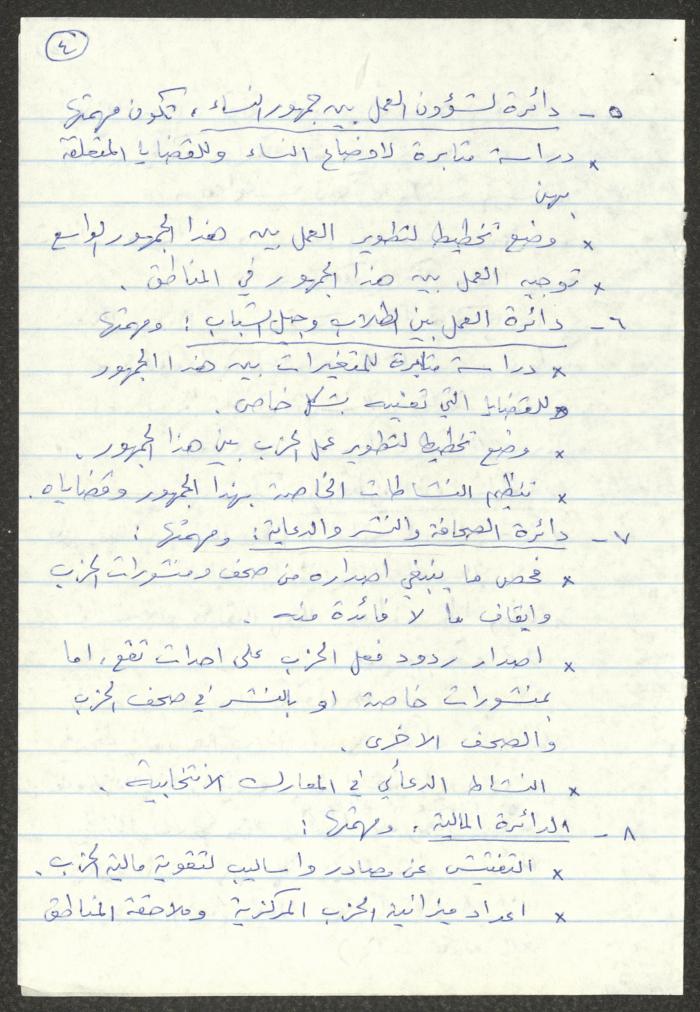 ٤
٥ - دائرة لشؤون العمل بين جمهور النساء، تكون مهمتها
× دراسة مثابرة لاوضاع النساء وللقضايا المتعلقة
بهن
× وضع تخطيط لتطوير العمل بين هذا الجمهور الواسع
× توجيه العمل بين هذا الجمهور في المناطق .
٦ - دائرة العمل بين الطلاب وجيل الشباب : ومهمتها
× دراسة مثابرة للمتغيرات بين هذا الجمهور
وللقضايا التي تعنيه بشكل خاص .
× وضع تخطيط لتطوير عمل الحزب بين هذا الجمهور .
× تنظيم النشاطات الخاصة بهذا الجمهور وقضاياه .
٧ - دائرة الصحافة والنشر والدعاية : ومهمتها :
× فحص ما ينبغي اصداره من صحف ومنشورات الحزب
وايقاف ما لا فائدة منه .
× اصدار ردود فعل الحزب على احداث تقع، اما
بمنشورات خاصة او بالنشر في صحف الحزب
والصحف الاخرى .
× النشاط الدعائي في المعارك الانتخابية .
٨ - الدائرة المالية . ومهمتها :
× التفتيش عن مصادر واساليب لتقوية مالية الحزب .
× اعداد ميزانية الحزب المركزية وملاحقة المناطق